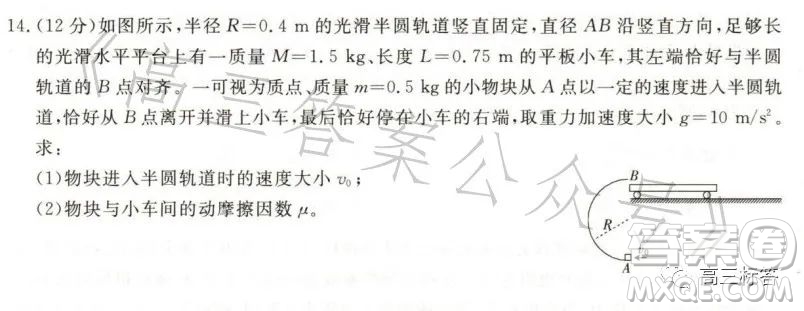 14.(12分)如图所示,半径R=0.4 m的光滑半圆轨道竖直固定,直径AB沿竖直方向,足够长
的光滑水平平台上有一质量M=1.5 kg、长度L=0.75 m的平板小车,其左端恰好与半圆
轨道的B点对齐。一可视为质点、质量m=0.5 kg的小物块从A点以一定的速度进入半圆轨
道,恰好从B点离开并滑上小车,最后恰好停在小车的右端,取重力加速度大小g=10 m/s²。
求:
(1)物块进入半圆轨道时的速度大小v₀;
(2)物块与小车间的动摩擦因数μ。
B
R
A
《高三答案公众号》
答案圈
高三标答
MXQE.COM